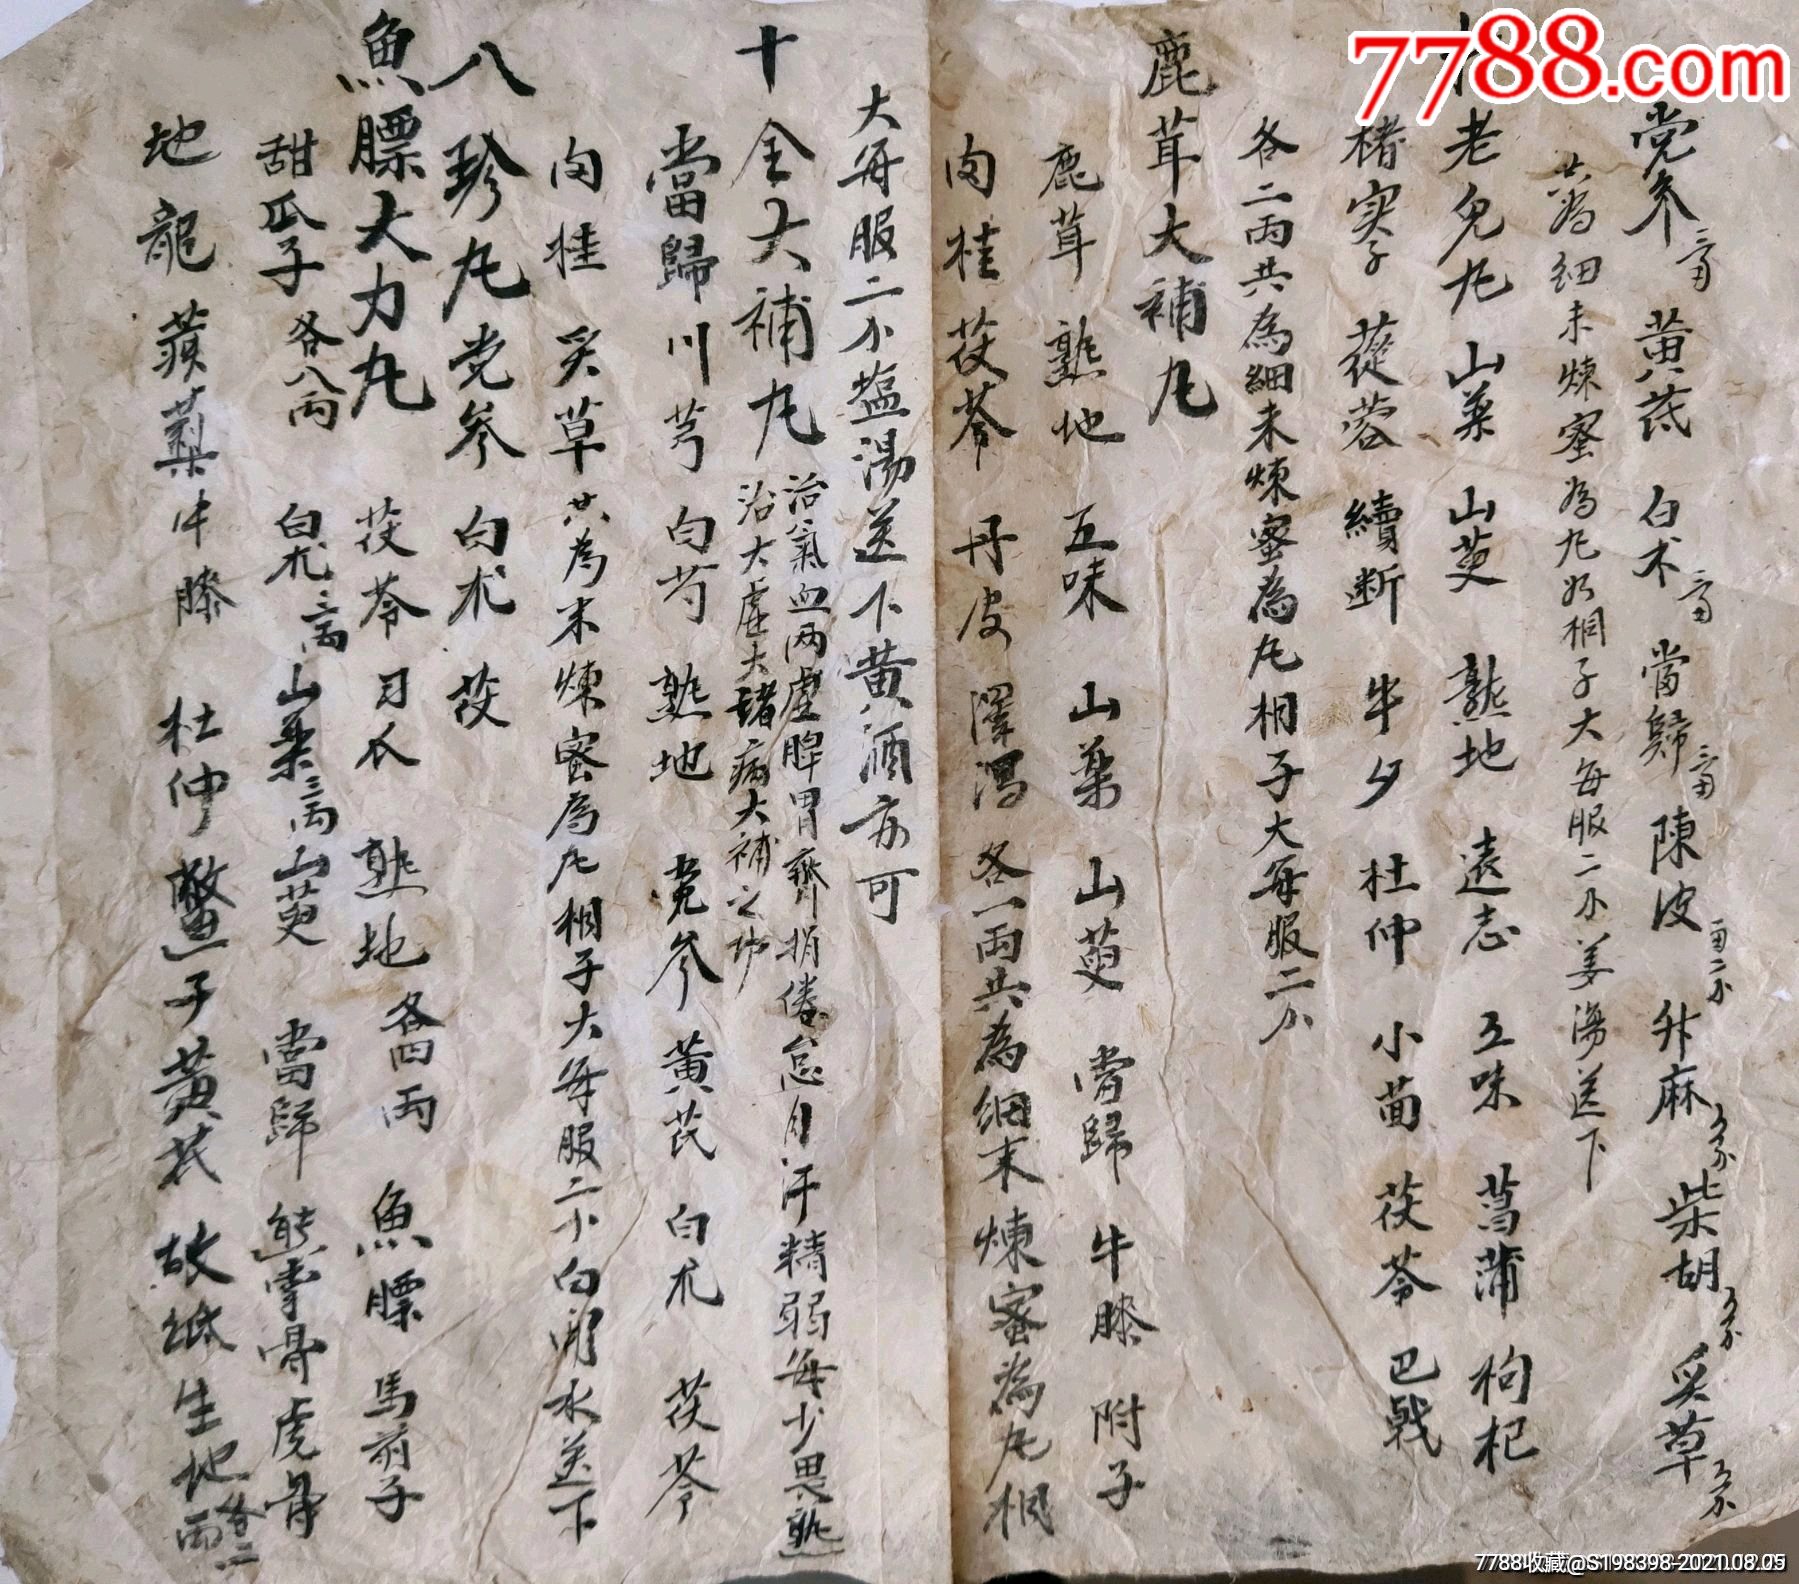 党参 三両 黄茋 白术 三両 當歸 三両 陳皮 升麻 柴胡 炙草
共為細末煉蜜為丸如桐子大每服二小姜湯送下
老児丸 山薬 山萸 熟地 遠志 五味 菖蒲 枸杞
楮实子 蓯蓉 續断 牛夕 杜仲 小茴 茯苓 巴戟
各二両共為細末煉蜜為丸桐子大每服二小
鹿茸大補丸
鹿茸 熟地 五味 山薬 山萸 當歸 牛膝 附子
肉桂 茯苓 丹皮 澤瀉 各一両共為細末煉蜜為丸桐
大每服二小塩湯送下黄酒亦可
十全大補丸 治氣血两虚脾胃齊捐倦怠自汗精弱每少畏熱
治大虚大諸病大補之功
當歸 川芎 白芍 熟地 党参 黄芪 白朮 茯苓
肉桂 炙草 共為末煉蜜為丸桐子大每服二小白開水送下
八珍丸 党參 白朮 茯
魚膘大力丸 茯苓 目瓜 熟地 各四両 魚膘 馬前子
甜瓜子 各八両 白朮 三両 山薬 三両 山萸 當歸 熊掌骨 虎骨
地龍 蒺藜 牛膝 杜仲 鱉子 黄芪 故纸 生地 各二両
7788.com
7788收藏@S198398-2021.08.05